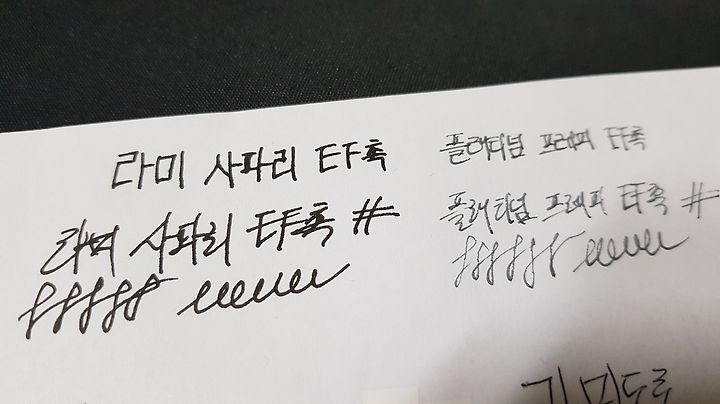 라미 사파리 EF촉
라미 사파리 EF촉 #
플래티넘 프레피 EF촉
플래티넘 프레피 EF촉 #